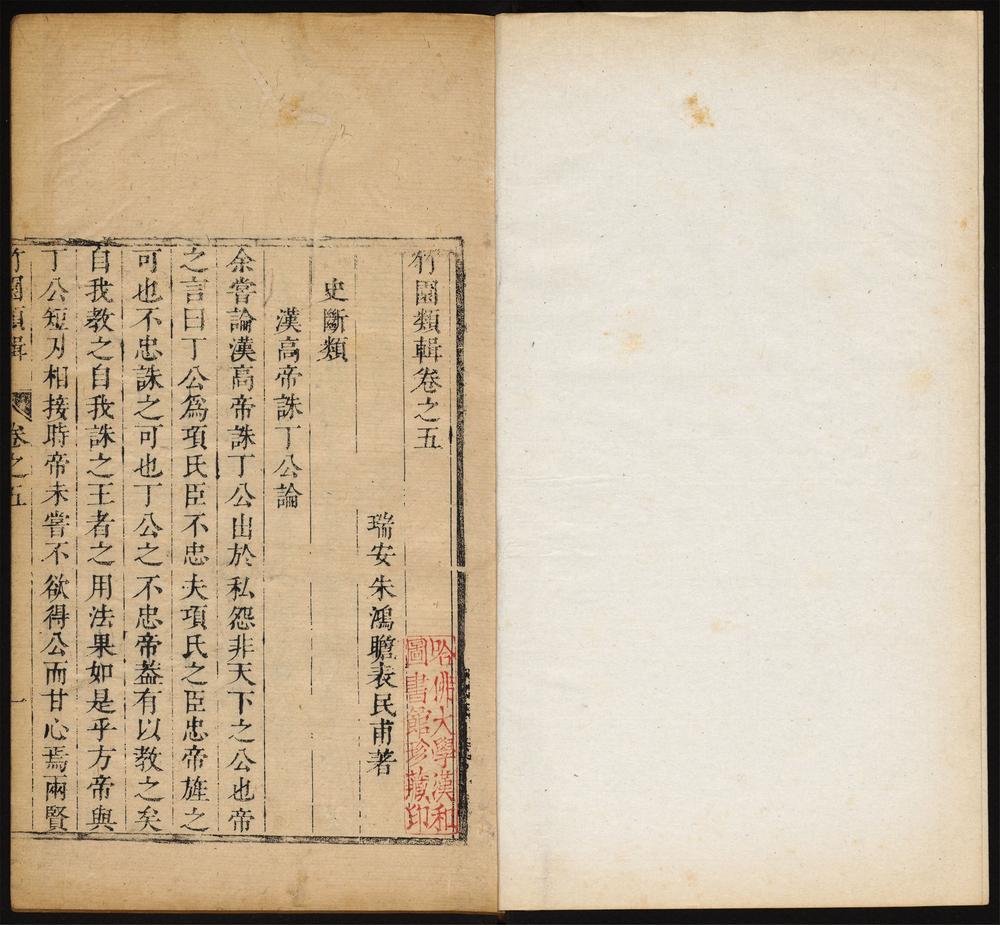 竹園類輯卷之五
瑞安朱鴻瞻表民甫著
史斷類
漢高帝誅丁公論
余嘗論漢高帝誅丁公出於私怨非天下之公也帝
之言曰丁公爲項氏臣不忠夫項氏之臣忠帝旌之
可也不忠誅之可也丁公之不忠帝葢有以教之矣
自我教之自我誅之王者之用法果如是乎方帝與
丁公短刃相接時帝未嘗不欲得公而甘心焉兩賢
竹園類輯
卷之五
一
哈佛大學漢和
圖書館珍藏印